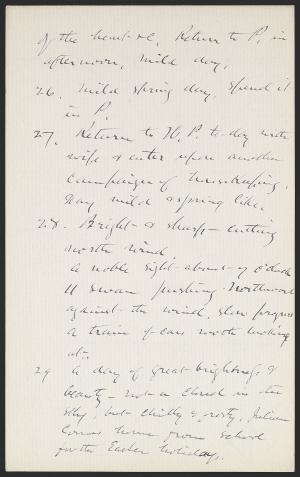 of the heart &c. Return to P. in
afternoon, mild day.
26. Mild spring day, spend it
in P.
27. Return to H. P. to-day with
wife & enter upon another
campaign of housekeeping.
Day mild & spring like.
28. Bright & sharp - cutting
north wind.
A noble sight about - 9 o'clock
11 swan pushing Northward
against the wind, slow progress
A train of cars worth looking
at.
29 A day of great brightness &
beauty - not a cloud in the
sky, but chilly & frosty. Julian
comes home from school
for the Easter holidays.